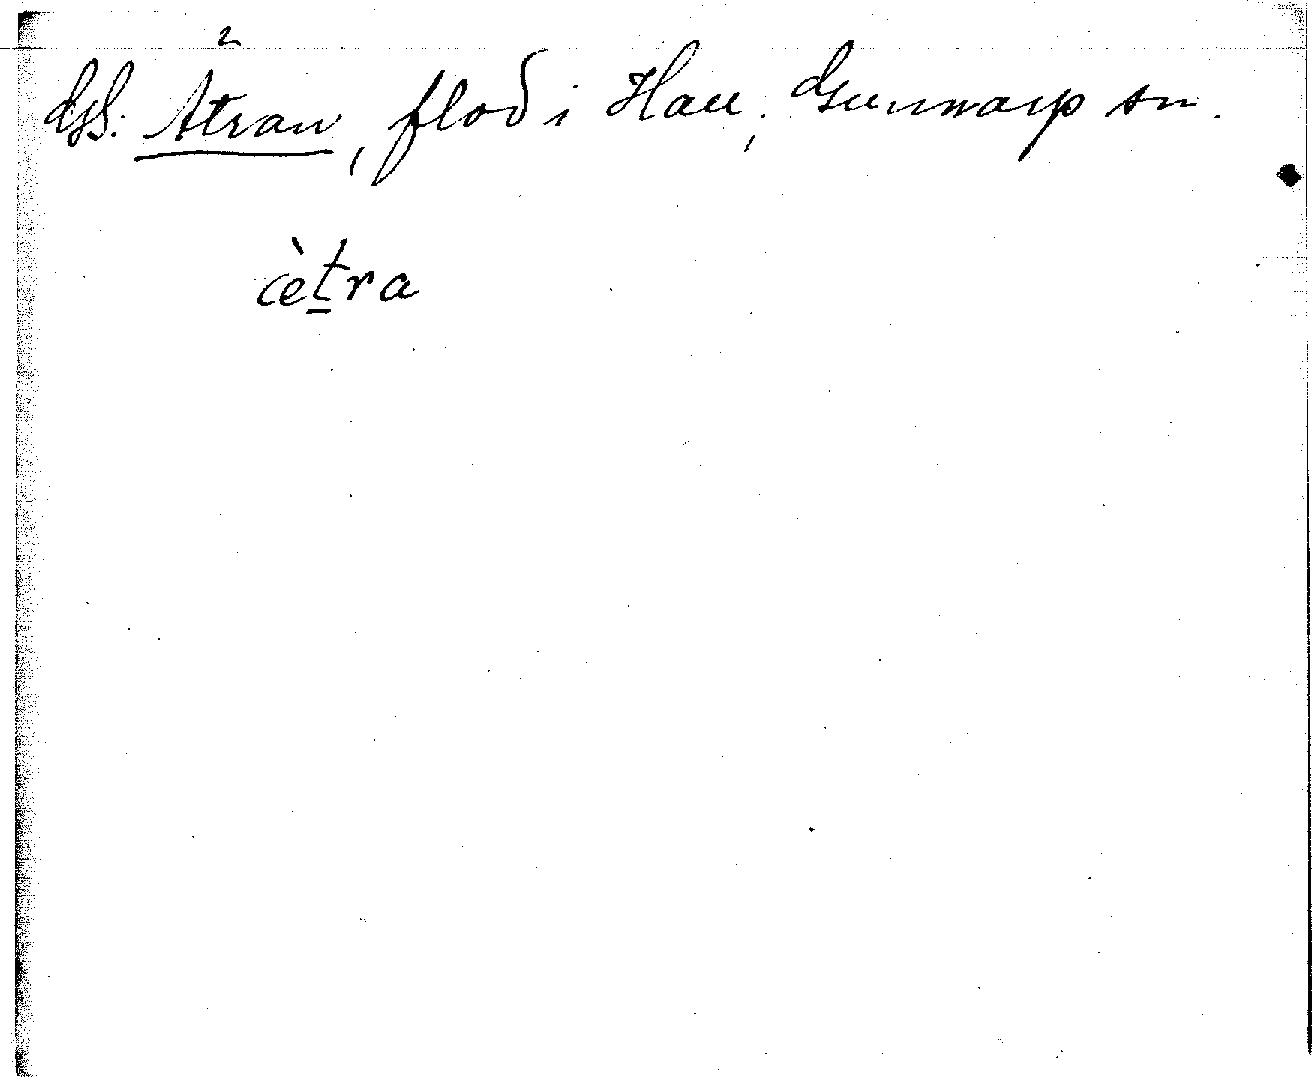 2
GSS. Ätran, flod i Hall; Gunnarp sn.
æ̀t̲ra